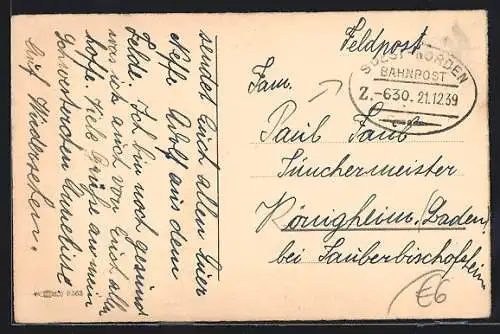 sendet Euch allen Euer
Neffe Adolf aus dem
Felde. Ich bin noch gesund
was ich auch von Euch allen
hoffe. Viele Grüße an mein
Schwesterchen Anneliese
Auf Wiedersehen.
Feldpost
SOEST NORDEN
BAHNPOST
Z.-630. 21.12.39
Fam.
Paul Faul
Tünchermeister
Königheim (Baden)
bei Tauberbischofsheim
E6